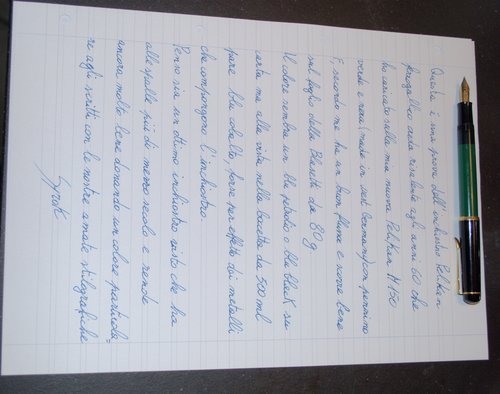 Questa è una prova dell'inchiostro Pelikan
Königsblau assai risalente agli anni 60 che
ho caricato sulla mia nuova Pelikan M 150
verde e nera (made in west Germany) con pennino
F, secondo me ha un buon flusso e scorre bene
sul foglio della Blasetti da 80 g.
Il colore sembra un blu petrolio o blu black su
carta ma alla vista nella boccetta da 500 ml
pare blu cobalto forse per effetto dei metalli
che compongono l'inchiostro.
Penso sia un ottimo inchiostro visto che ha
alle spalle più di mezzo secolo e rende
ancora molto bene donando un colore particola=
re agli scritti con le nostre amate stilografiche